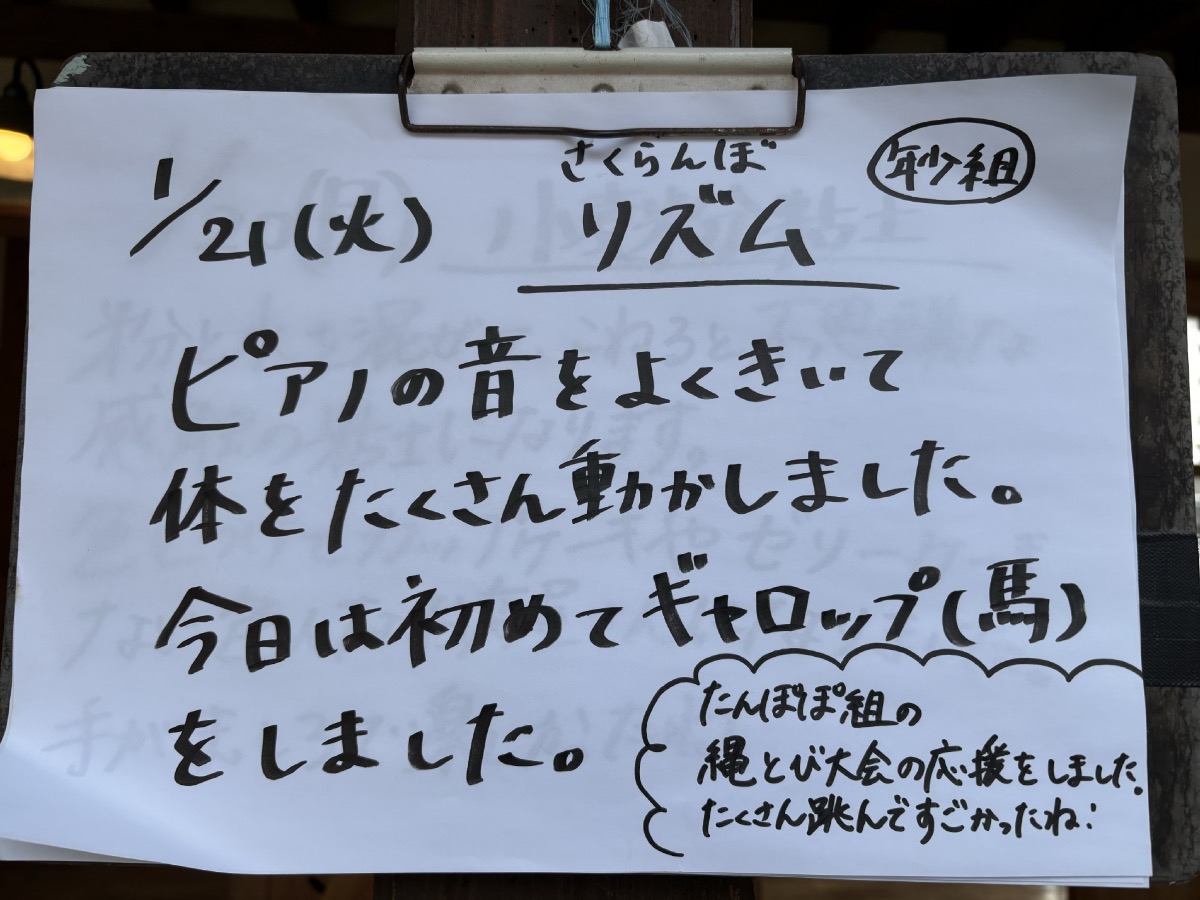 1/21(火)
さくらんぼ
リズム
年少組
ピアノの音をよくきいて
体をたくさん動かしました。
今日は初めてギャロップ(馬)
をしました。
たんぽぽ組の
縄とび大会の応援をしました。
たくさん跳んですごかったね!